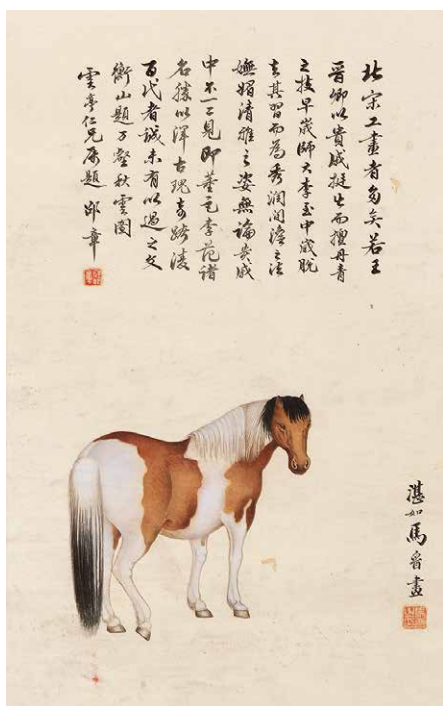 北宋工畫者多矣若王
晉卿以貴戚挺生而擅丹青
之技早歲師大李至中歲脫
去其習而為秀潤閒澹之法
嫵媚清雅之姿無論貴戚
中不一二見即董巨李范諸
名勝以渾古瑰奇跨凌
百代者誠未有以過之文
衡山題万壑秋雲圖
雲亭仁兄屬題 邵章
湛如馬晉畫